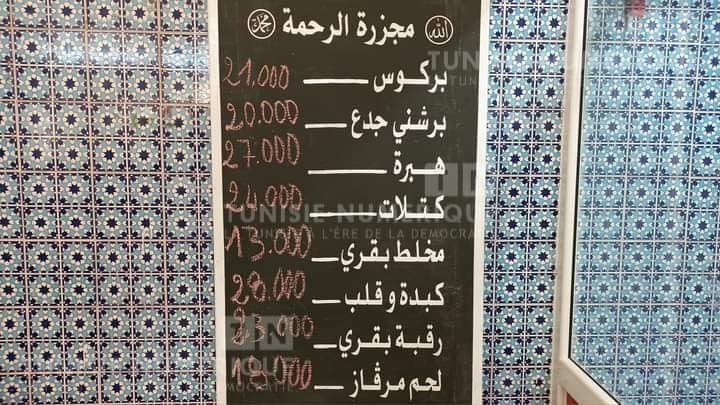 الله مجزرة الرحمة محمد
بركوس 21.000
برشني جدع 20.000
هبرة 27.000
كتلات 24.000
مخلط بقري 13.000
كبدة و قلب 28.000
رقبة بقري 23.000
لحم مرڨاز
TUNISIE NUMERIQUE
TUNISIE À L'ÈRE DE LA DEMOCRATIE